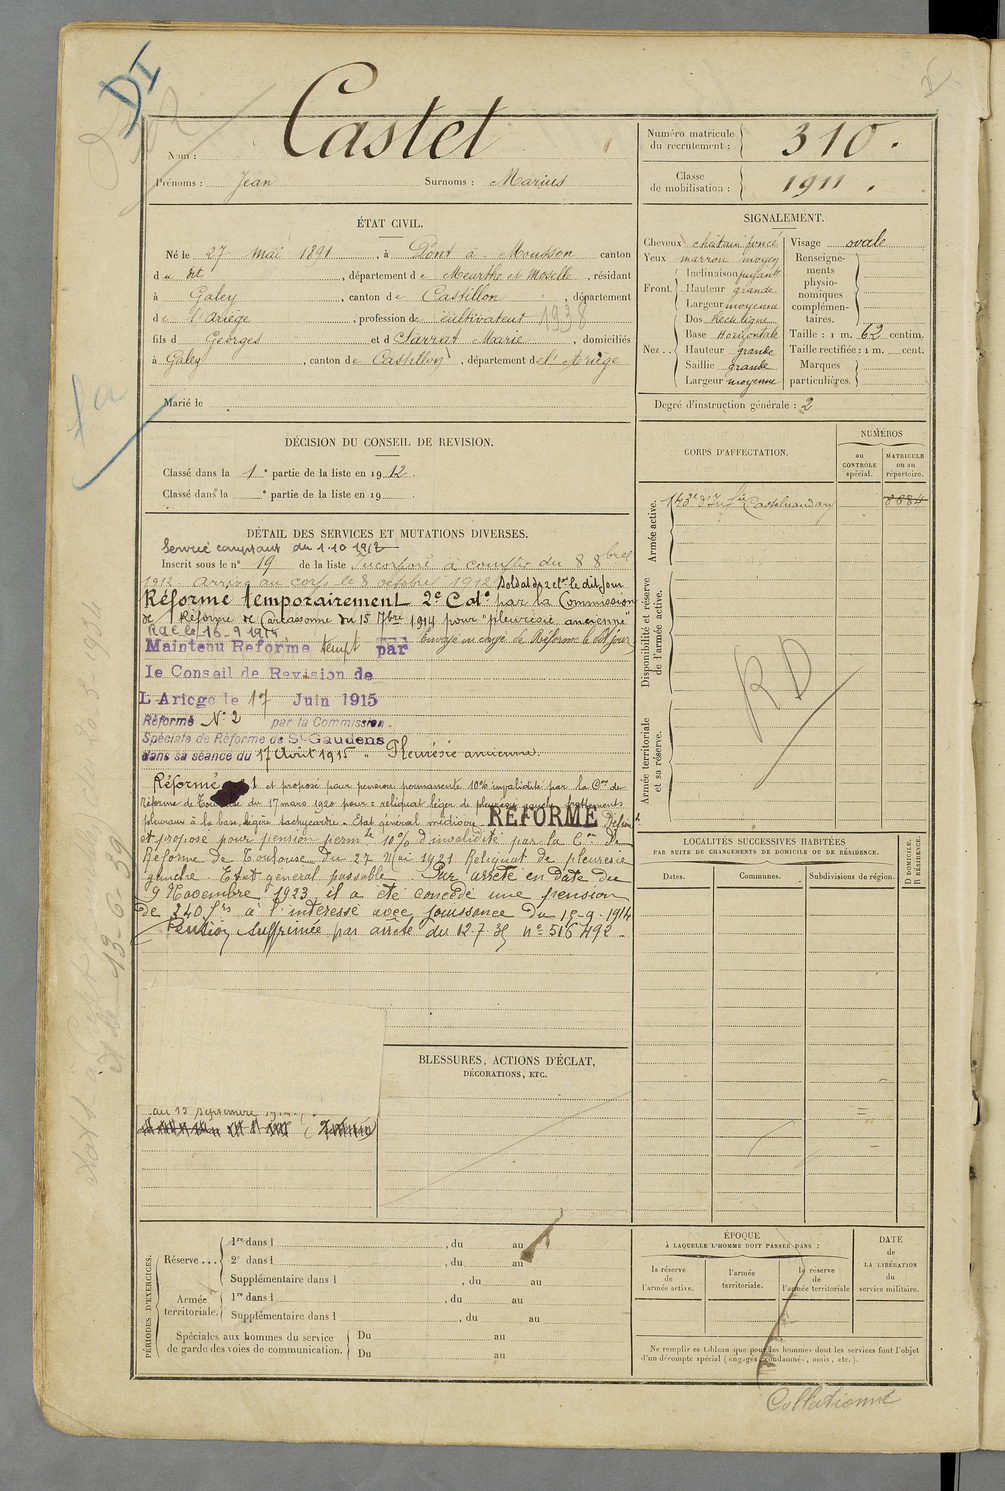 DI
Castet
Nom :
Prénoms : Jean Surnoms : Marius
Numéro matricule du recrutement : 310.
Classe de mobilisation : 1911.
ÉTAT CIVIL.
Né le 27 mai 1891, à Pont à Mousson canton
du dit, département de Meurthe et Moselle, résidant
à Galey, canton de Castillon, département
de l'Ariège, profession de cultivateur 1938
fils de Georges et de Sarrat Marie, domiciliés
à Galey, canton de Castillon, département de l'Ariège
Marié le
SIGNALEMENT.
Cheveux châtain foncé
Yeux marron moyen
Front. Inclinaison fuyante
Hauteur grande
Largeur moyenne
Nez.. Dos Rectiligne
Base Horizontale
Hauteur grande
Saillie grande
Largeur moyenne
Visage ovale
Renseignements physionomiques complémentaires.
Taille : 1 m. 62 centim.
Taille rectifiée : 1 m. cent.
Marques particulières.
Degré d'instruction générale : 2
DÉCISION DU CONSEIL DE REVISION.
Classé dans la 1e partie de la liste en 1912.
Classé dans la e partie de la liste en 19
DÉTAIL DES SERVICES ET MUTATIONS DIVERSES.
Service comptant du 1.10.1912
Inscrit sous le n° 19 de la liste Incorporé à compter du 8 8bre
1912. Arrivé au corps le 8 octobre 1912 Soldat de 2e cl. le dit jour
Réformé Temporairement 2e Cat. par la Commission
de Réforme de Carcassonne du 15 7bre 1914 pour "pleurésie ancienne"
Rac le 16-9 1914 Envoyé en congé de Réforme le dit jour
Maintenu Réformé temp. par
le Conseil de Revision de
L'Ariege le 17 Juin 1915
Réformé N° 2 par la Commission
Spéciale de Réforme de St Gaudens
dans sa séance du 17 Août 1915 Pleurésie ancienne.
Réformé 1 et proposé pour pension permanente 10% invalidité par la Con de
réforme de Toulouse du 17 mars 1920 pour : reliquat léger de pleurésie gauche frottements
pleuraux à la base, légère tachycardie. Etat général médiocre. RÉFORMÉ
et proposé pour pension permte 10% d'invalidité par la Con de
Réforme de Toulouse du 27 Mai 1921 Reliquat de pleurésie
gauche. Etat général passable. Par arrêté en date du
9 Novembre 1923 il a été concédé une pension
de 240 frs à l'intéressé avec jouissance du 15-9-1914
Pension supprimée par arrêté du 12.7.35 n° 516492
au 15 septembre
BLESSURES, ACTIONS D'ÉCLAT,
DÉCORATIONS, ETC.
CORPS D'AFFECTATION.
NUMÉROS
au CONTRÔLE spécial.
MATRICULE ou au répertoire.
Armée active.
143e d'Infie Castelnaudary 8884
Disponibilité et réserve de l'armée active.
RD
Armée territoriale et sa réserve.
LOCALITÉS SUCCESSIVES HABITÉES
PAR SUITE DE CHANGEMENTS DE DOMICILE OU DE RÉSIDENCE.
Dates.
Communes.
Subdivisions de région.
D DOMICILE. R RÉSIDENCE.
PÉRIODES D'EXERCICES.
Réserve... 1re dans l , du au
2e dans l , du au
Supplémentaire dans l , du au
Armée territoriale. 1re dans l , du au
Supplémentaire dans l , du au
Spéciales aux hommes du service Du au
de garde des voies de communication. Du au
ÉPOQUE
À LAQUELLE L'HOMME DOIT PASSER DANS :
la réserve de l'armée active.
l'armée territoriale.
la réserve de l'armée territoriale
DATE de LA LIBÉRATION du service militaire.
Ne remplir ce tableau que pour les hommes dont les services font l'objet
d'un décompte spécial (engagés, condamnés, omis, etc.).
Collationné
13-6-39